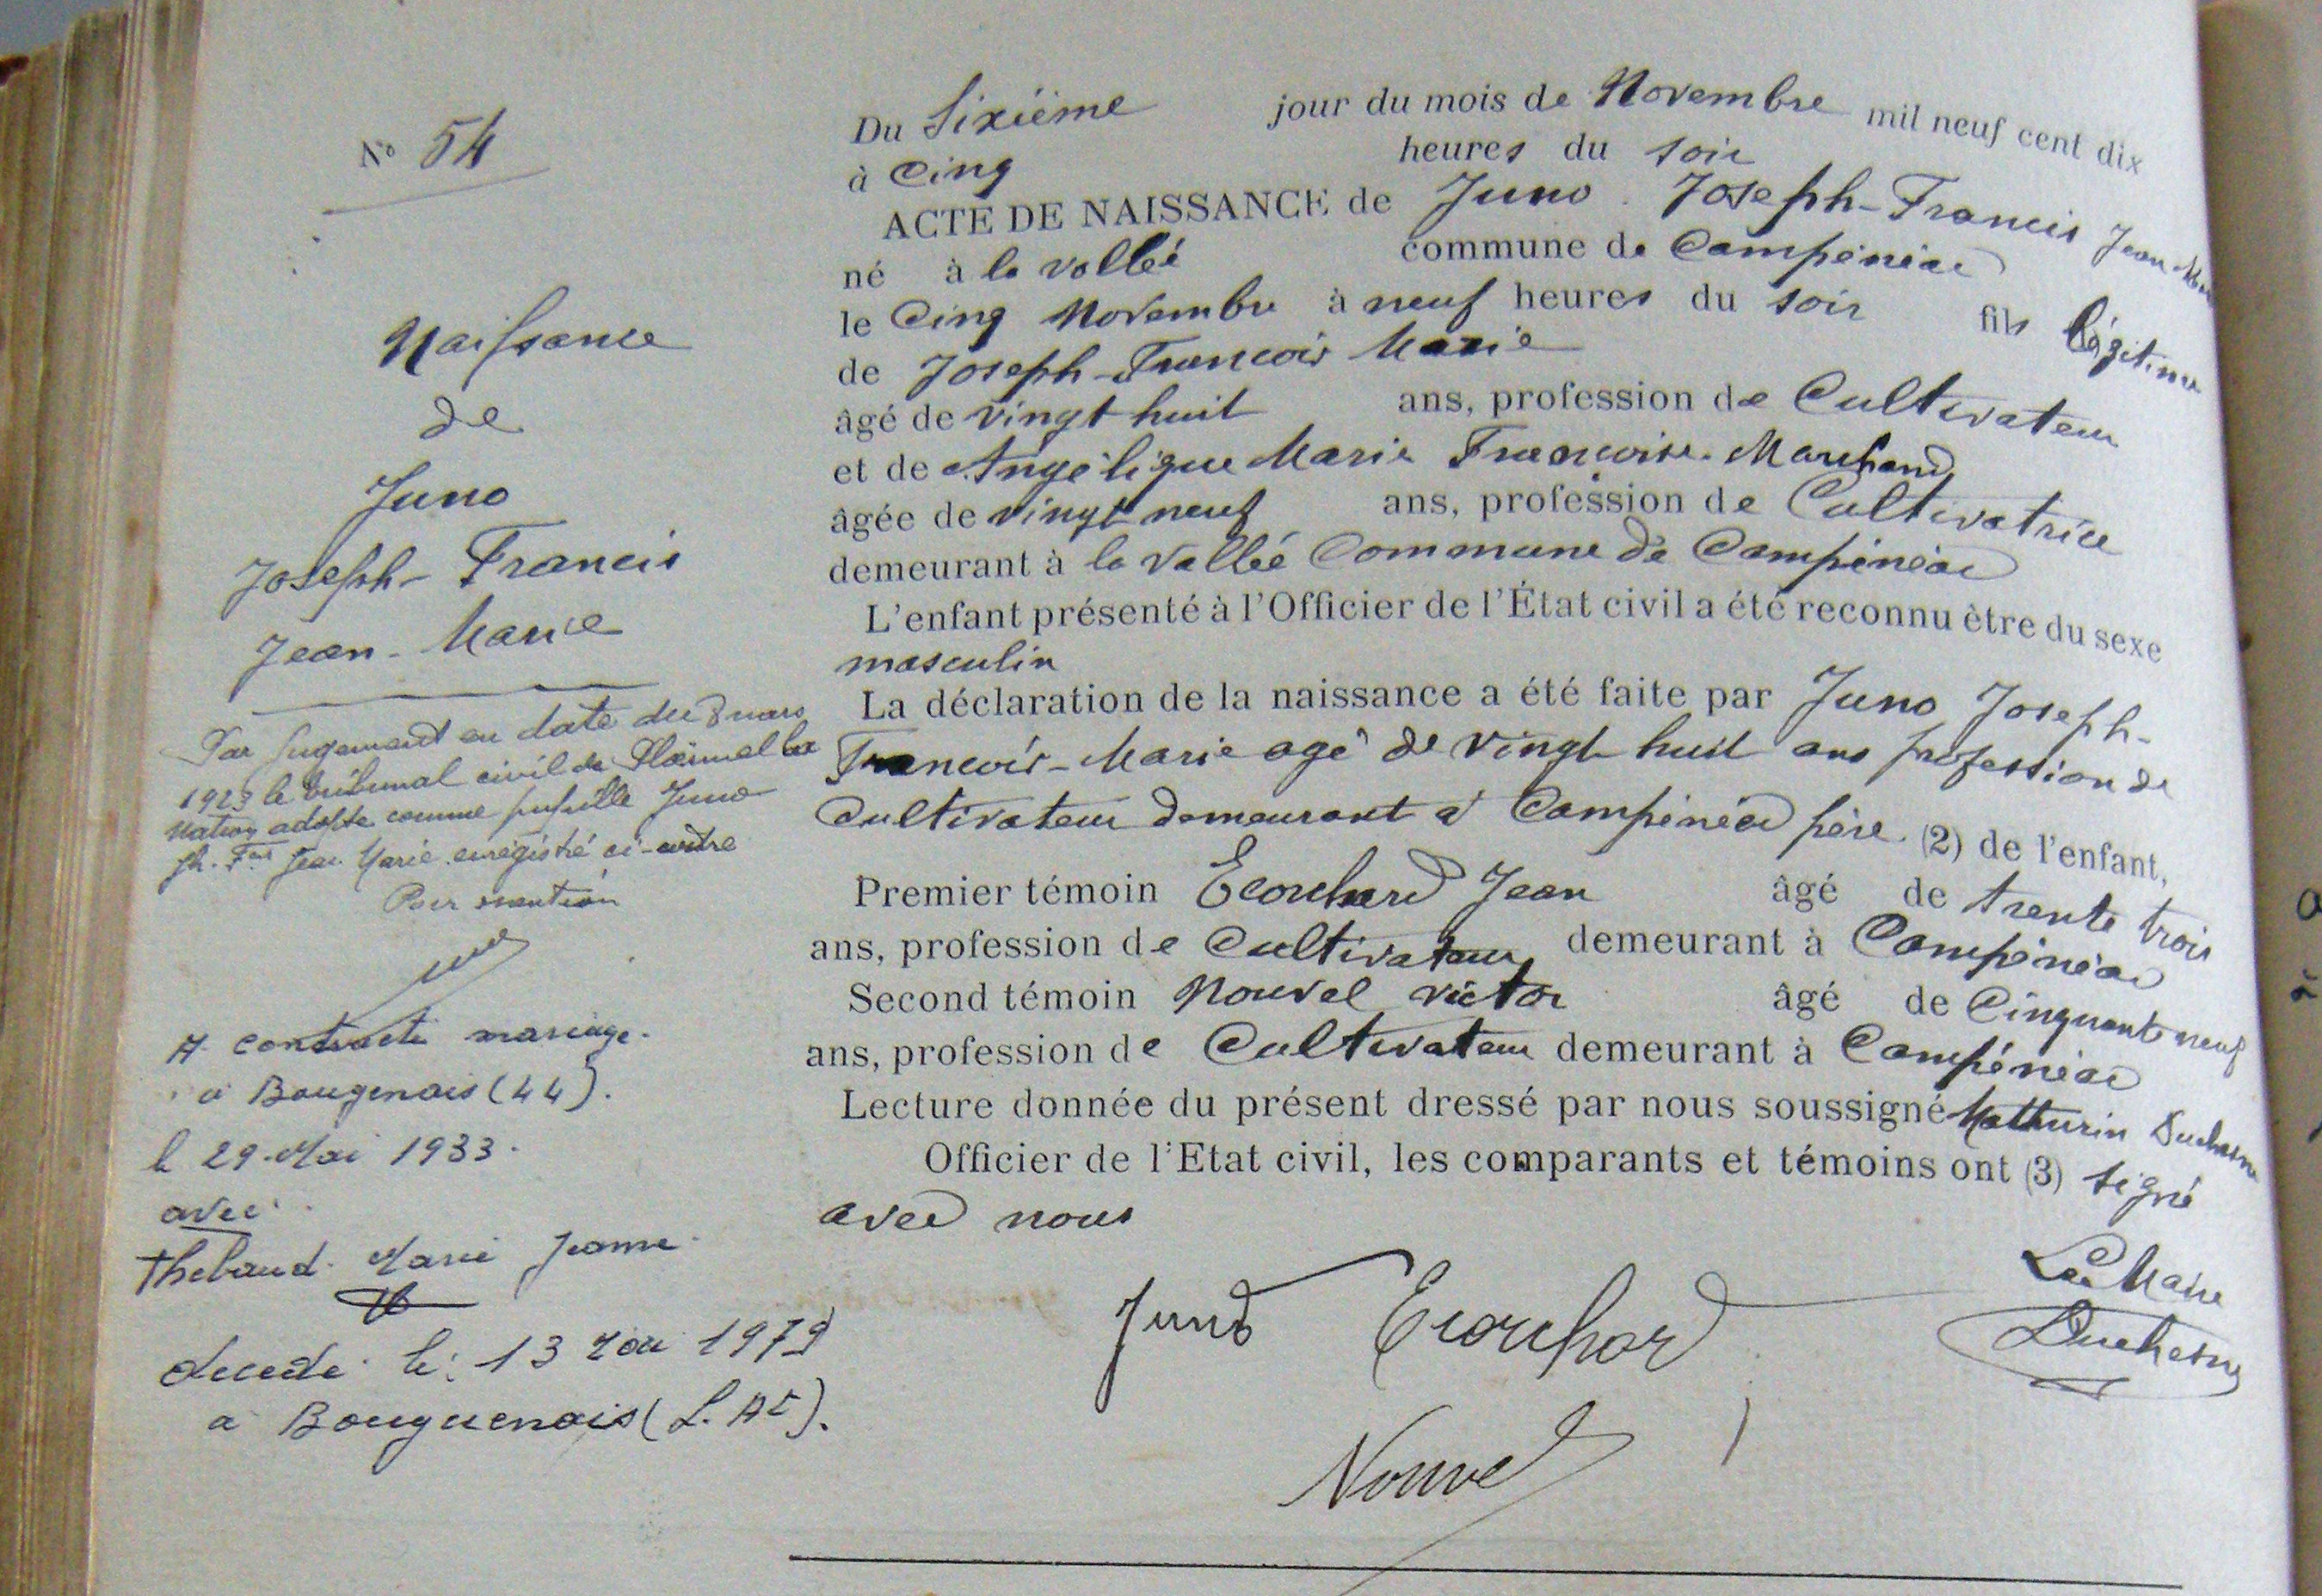 N° 54
Naissance
de
Juno
Joseph- Francis
Jean- Marie
Par jugement en date du 8 mars
1923 le tribunal civil de Ploërmel la
Nation adopte comme pupille Juno
Jh. F.ois Jean Marie enregistré ci-contre
Pour mention
A contracté mariage.
a Bougenais (44).
le 29 Mai 1933.
avec
Thebaud Marie Jeanne
decede le: 13 1979
a Bouguenais (L. At).
Du Sixième jour du mois de Novembre mil neuf cent dix
à Cinq heures du soir
ACTE DE NAISSANCE de Juno Joseph-Francis Jean-Marie
né à la vallée commune de Campénéac
le Cinq Novembre à neuf heures du soir fils légitime
de Joseph-Francois Marie
âgé de vingt huit ans, profession de Cultivateur
et de Angélique Marie Francoise Marchand
âgée de vingt neuf ans, profession de Cultivatrice
demeurant à la Vallée Commune de Campénéac
L'enfant présenté à l'Officier de l'État civil a été reconnu être du sexe
masculin
La déclaration de la naissance a été faite par Juno Joseph-
Francois-Marie agé de vingt huit ans profession de
Cultivateur demeurant à Campénéac père (2) de l'enfant,
Premier témoin Ecouchard Jean âgé de trente trois
ans, profession de Cultivateur demeurant à Campénéac
Second témoin Nouvel victor âgé de Cinquante neuf
ans, profession de Cultivateur demeurant à Campénéac
Lecture donnée du présent dressé par nous soussigné Mathurin Duchesne
Officier de l'Etat civil, les comparants et témoins ont (3) signé
avec nous
Le Maire
Juno Ecouchard Duchesne
Nouvel